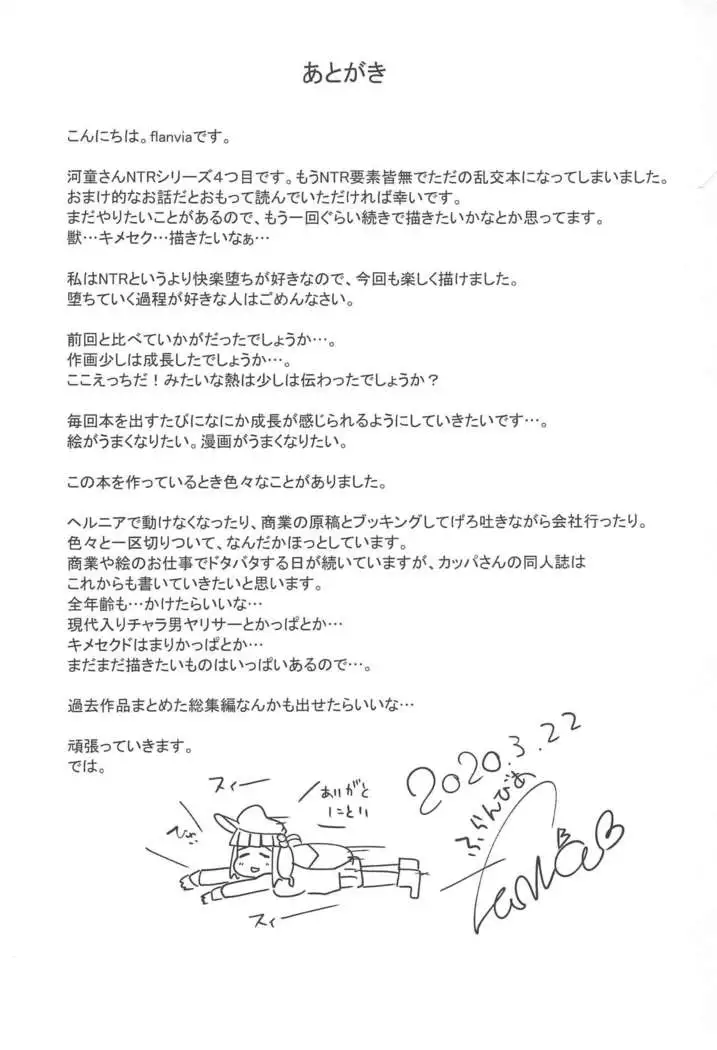 あとがき
こんにちは。flanviaです。
河童さんNTRシリーズ4つ目です。もうNTR要素皆無でただの乱交本になってしまいました。
おまけ的なお話だとおもって読んでいただければ幸いです。
まだやりたいことがあるので、もう一回ぐらい続きで描きたいかなとか思ってます。
獣…キメセク…描きたいなぁ…
私はNTRというより快楽堕ちが好きなので、今回も楽しく描けました。
堕ちていく過程が好きな人はごめんなさい。
前回と比べていかがだったでしょうか…。
作画少しは成長したでしょうか…。
ここえっちだ！みたいな熱は少しは伝わったでしょうか？
毎回本を出すたびになにか成長が感じられるようにしていきたいです…。
絵がうまくなりたい。漫画がうまくなりたい。
この本を作っているとき色々なことがありました。
ヘルニアで動けなくなったり、商業の原稿とブッキングしてげろ吐きながら会社行ったり。
色々と一区切りついて、なんだかほっとしています。
商業や絵のお仕事でドタバタする日が続いていますが、カッパさんの同人誌は
これからも書いていきたいと思います。
全年齢も…かけたらいいな…
現代入りチャラ男ヤリサーとかっぱとか…
キメセクドはまりかっぱとか…
まだまだ描きたいものはいっぱいあるので…。
過去作品まとめた総集編なんかも出せたらいいな…
頑張っていきます。
では。
スィー
ありがと
2020.3.22
ふらんびあ
スィー